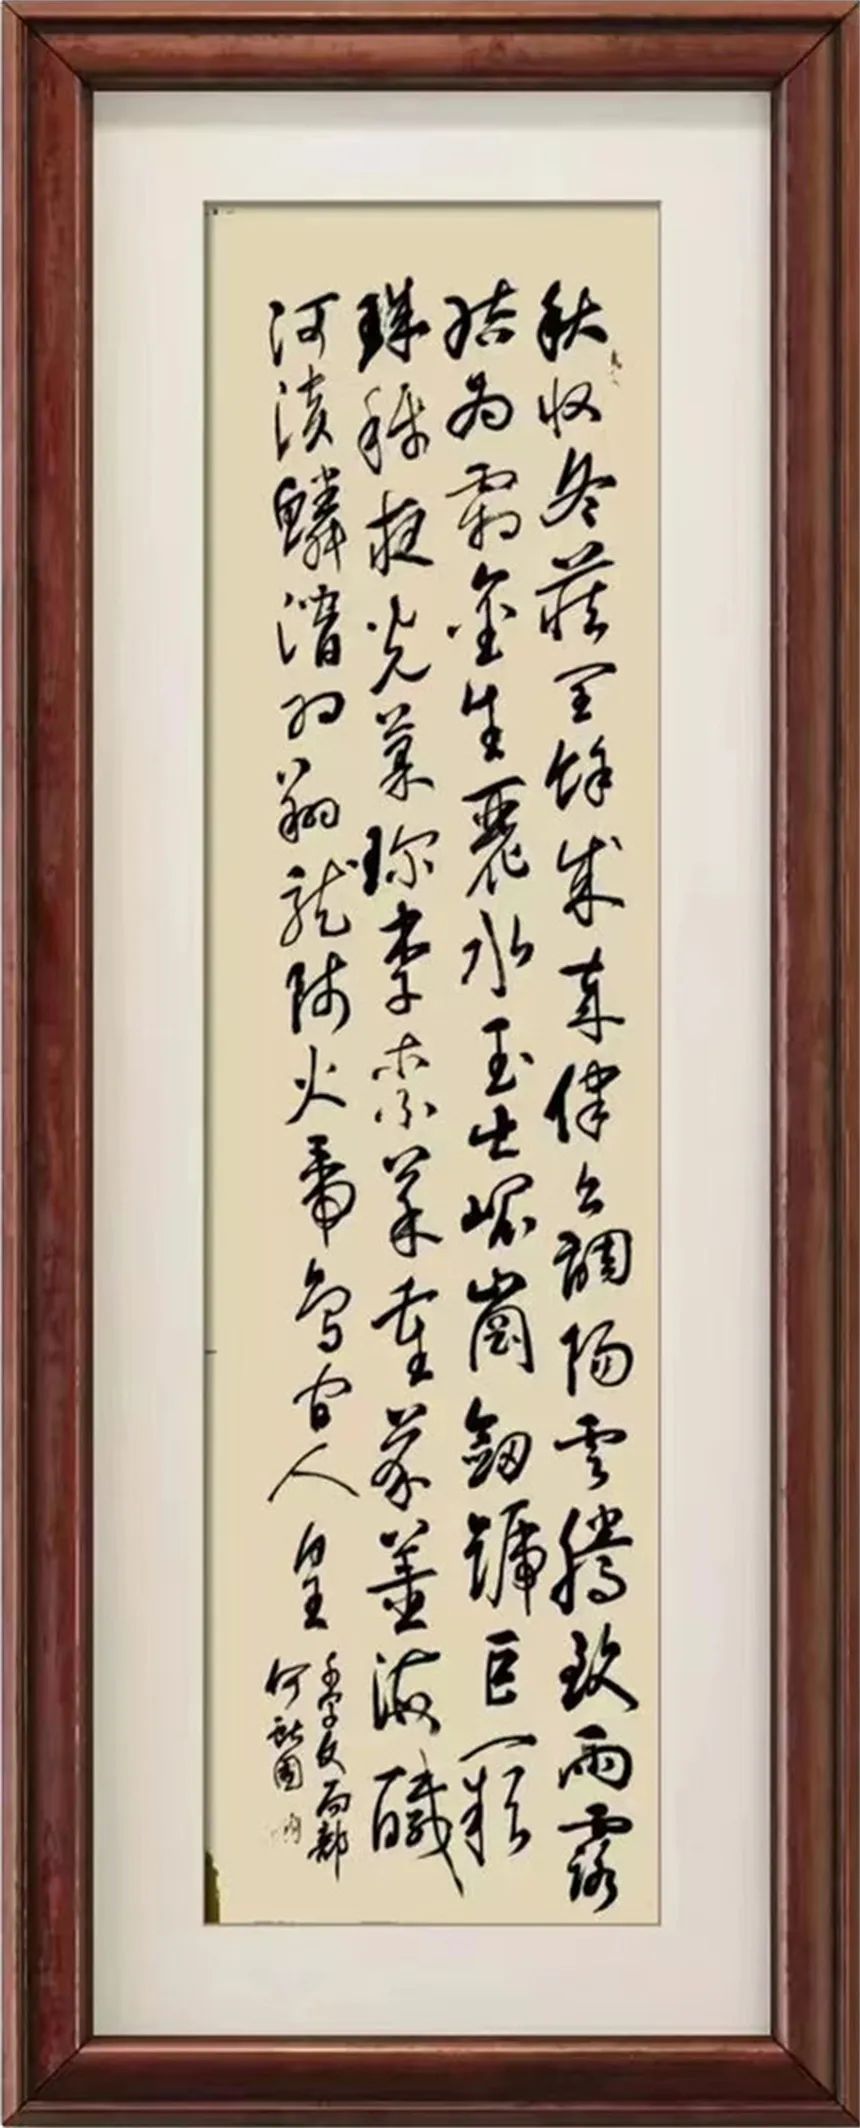 秋收冬藏閏餘成歲律吕調陽雲騰致雨露
結為霜金生麗水玉出崐崗劔號巨闕
珠稱夜光菓珍李柰菜重芥薑海醎
河淡鱗潛羽翔龍師火帝鳥官人皇
千字文局部